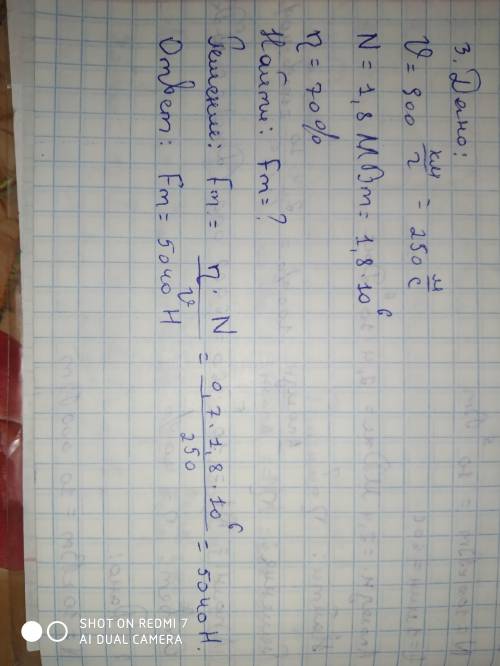 3. Дано:
V = 900 км/г = 250 м/с
N = 1,8 МВт = 1,8·10⁶
η = 70%
Найти: Fт = ?
Решение: Fт = η·N/V = 0,7·1,8·10⁶/250 = 5040 Н.
Ответ: Fт = 5040 Н
SHOT ON REDMI 7
AI DUAL CAMERA